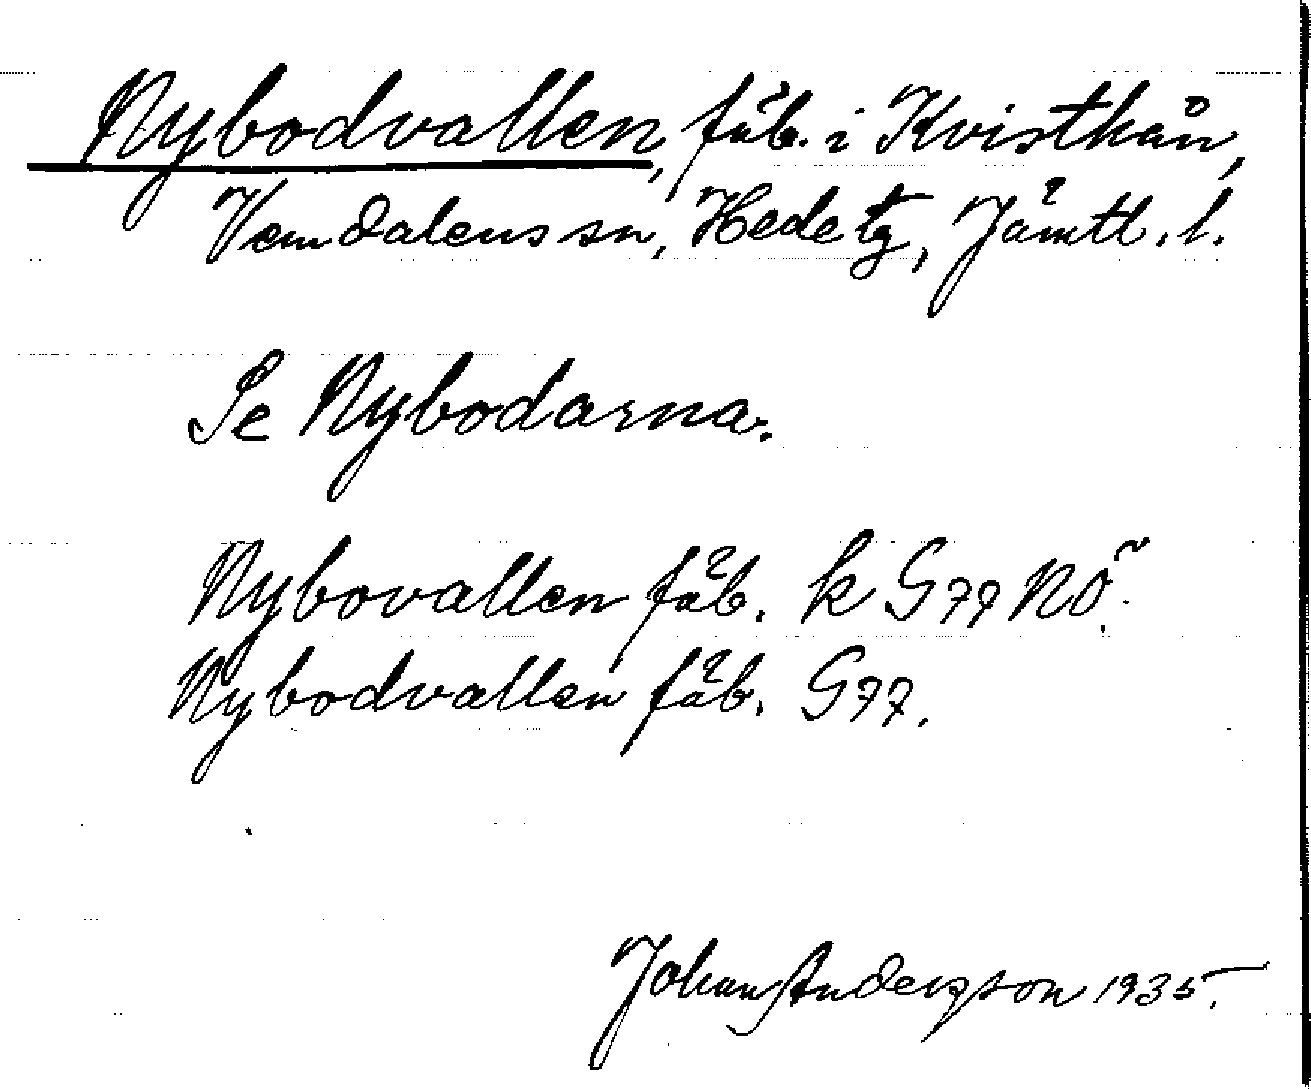 Nybodvallen, fäb. i Kvisthån,
Vemdalens sn, Hede tg, Jämtl. l.
Se Nybodarna.
Nybovallen fäb. k G77 NÖ.
Nybodvallen fäb. G77.
Johan Anderzson 1935.